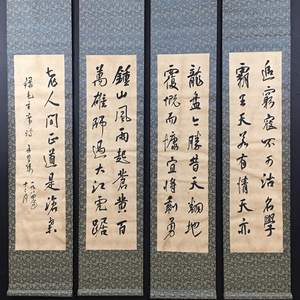 鍾山風雨起蒼黄百
萬雄師過大江虎踞
龍盤今勝昔天翻地
覆慨而慷宜將剩勇
追窮寇不可沽名學
霸王天若有情天亦
老人間正道是滄桑
毛主席詩